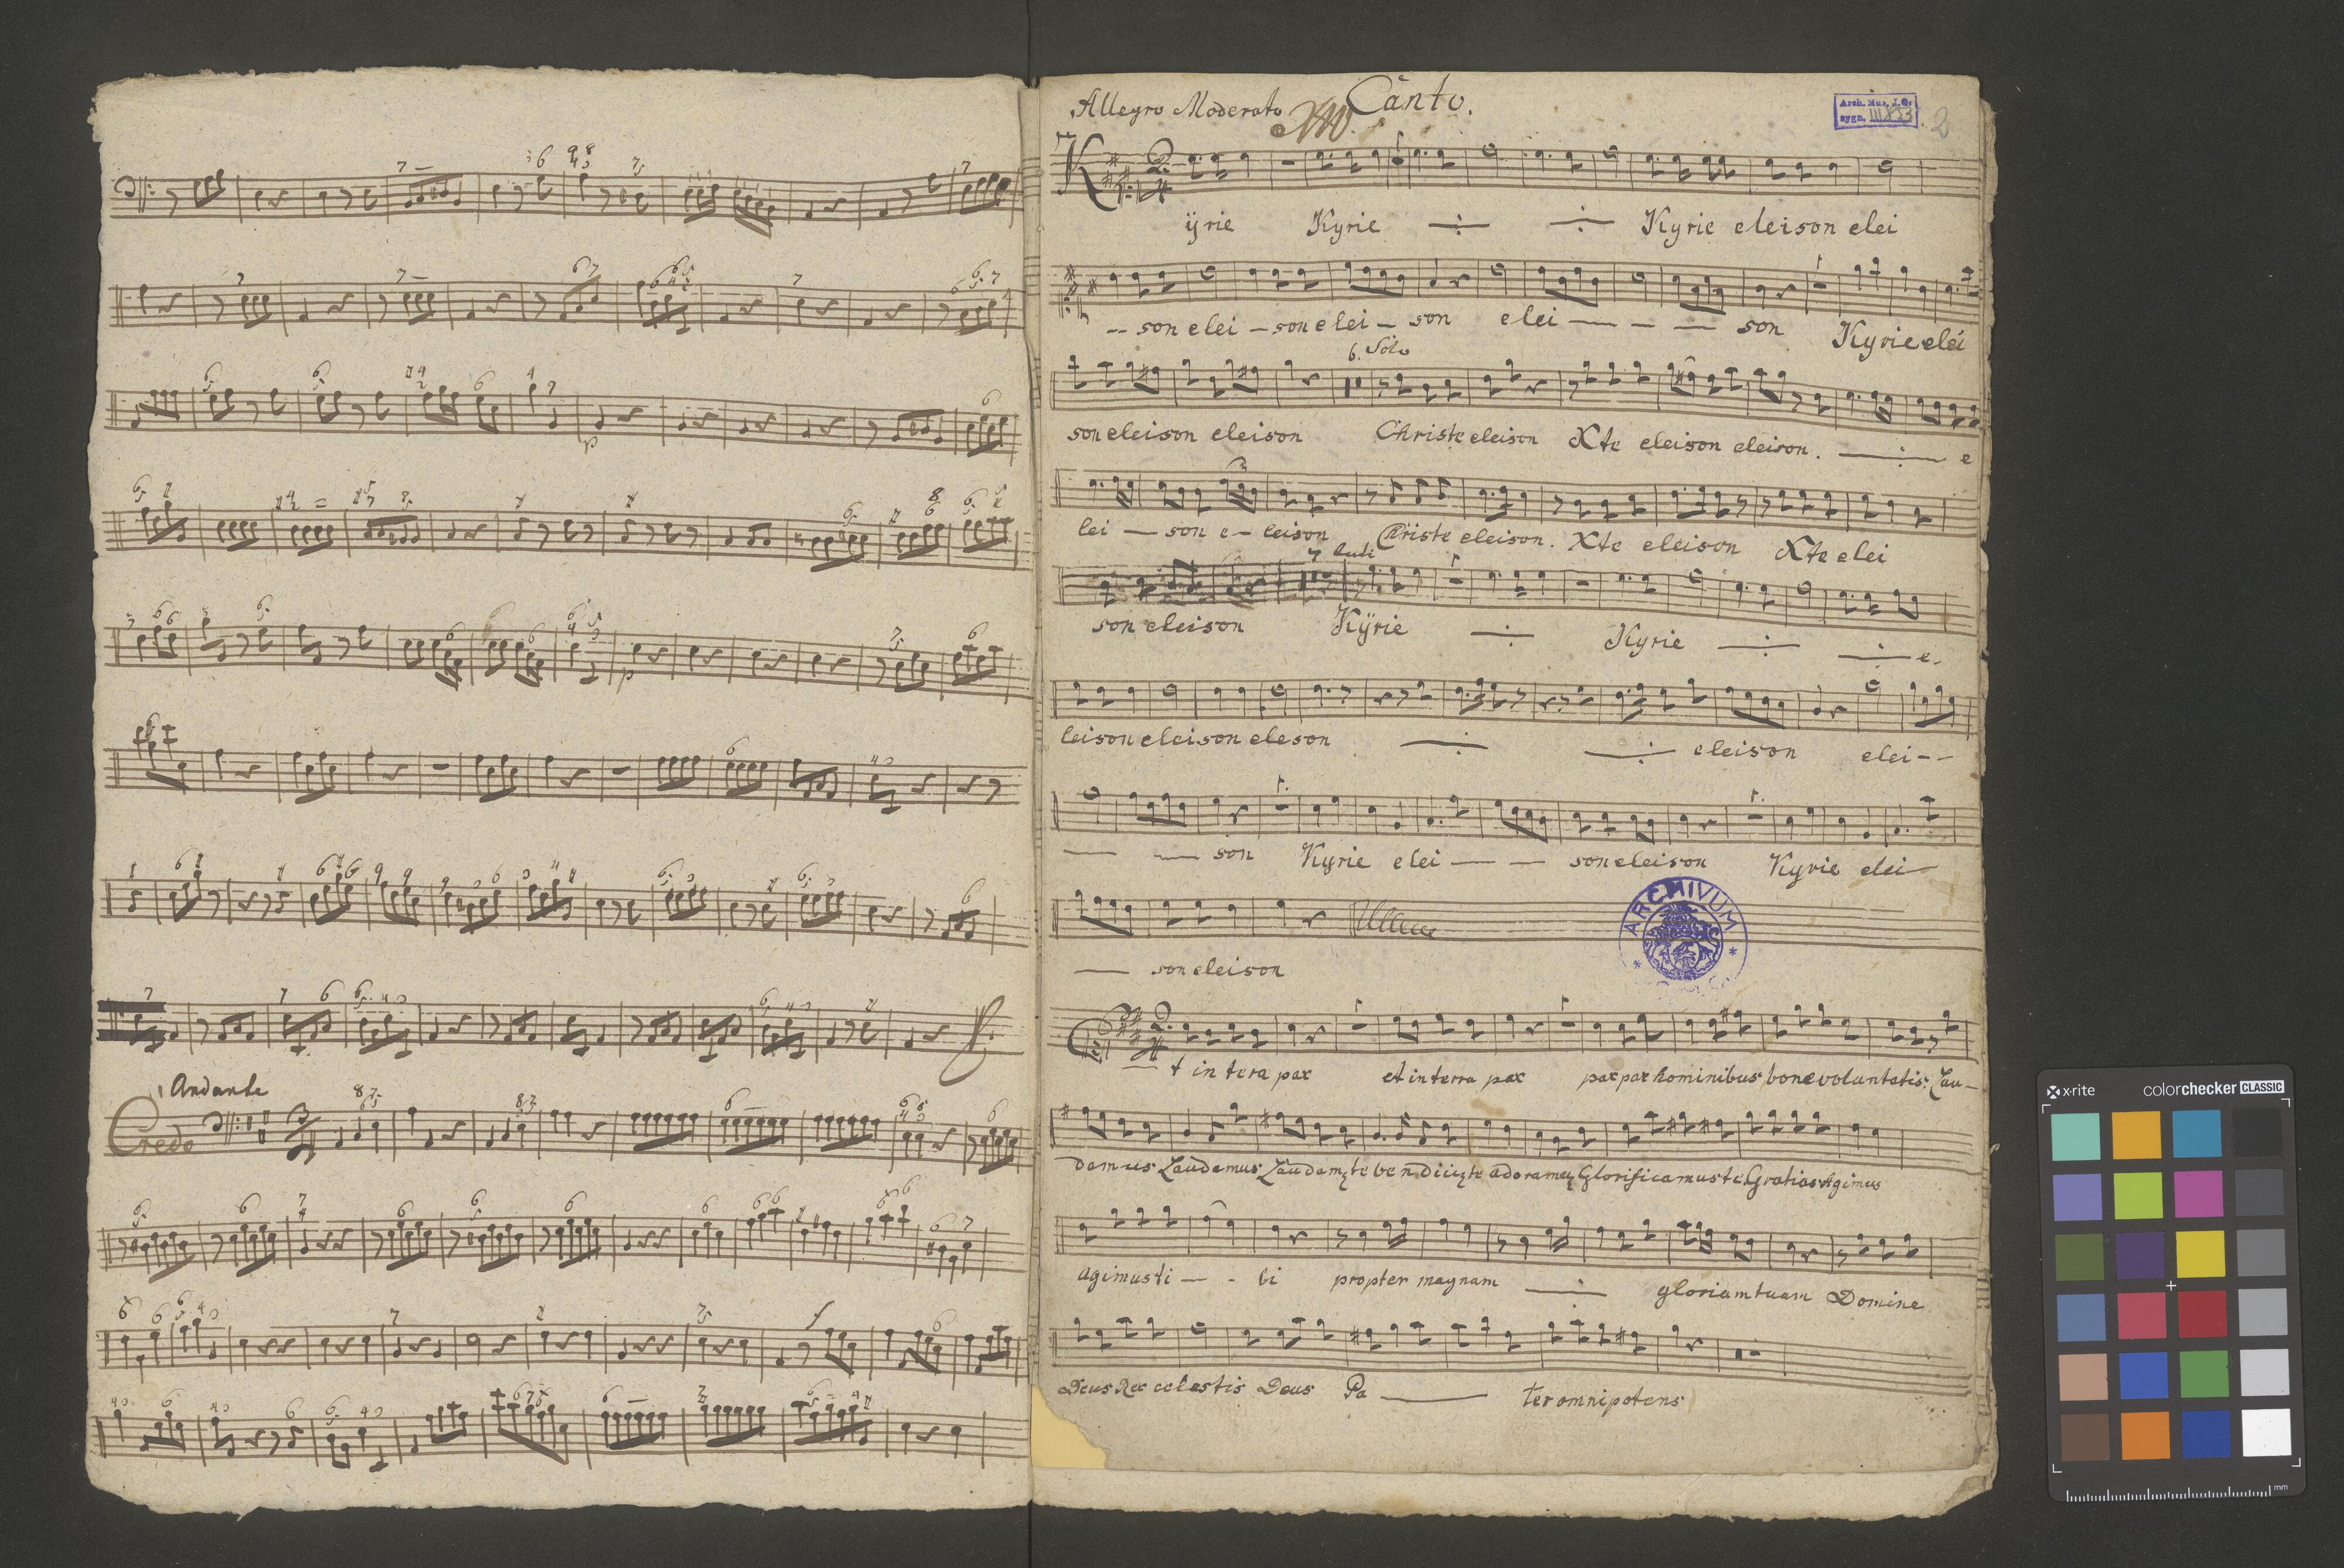 Andante
Credo
Allegro Moderato Canto.
Arch. Mus. J.G.
sygn. III 2
Kÿrie Kyrie Kyrie eleison elei
son elei - son elei - son elei - - - son Kyrie elei
6. Solo
son eleison eleison Christe eleison Xte eleison eleison. e
lei - son e - leison Christe eleison. Xte eleison Xte elei
7 tuti
son eleison Kÿrie Kyrie e-
leison eleison eleson eleison elei--
- - son Kyrie elei - - son eleison Kyrie elei
- son eleison
ARCHIVUM
Et in tera pax et in terra pax pax pax hominibus bone voluntatis: Lau-
damus Laudamus Glorificamus te. Gratias Agimus
agimus ti - - bi propter magnam gloriam tuam Domine
Deus Rex celestis Deus Pa - ter omnipotens
x-rite colorchecker CLASSIC
mm